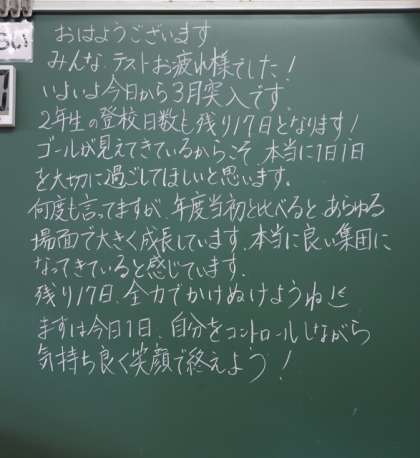 おはようございます
みんな、テストお疲れ様でした！
いよいよ今日から3月突入です。
2年生の登校日数も残り17日となります！
ゴールが見えてきているからこそ、本当に1日1日
を大切に過ごしてほしいと思います。
何度も言ってますが、年度当初と比べると、あらゆる
場面で大きく成長しています。本当に良い集団に
なってきていると感じています。
残り17日、全力でかけぬけようね!!
まずは今日1日、自分をコントロールしながら
気持ち良く笑顔で終えよう！